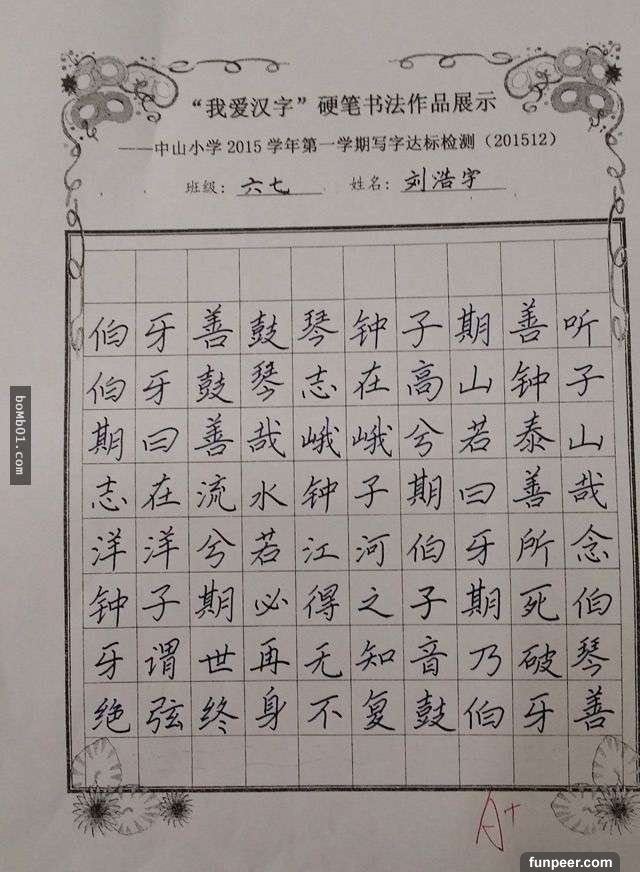 “我爱汉字”硬笔书法作品展示
——中山小学2015学年第一学期写字达标检测（201512）
班级：六七 姓名：刘浩宇
伯牙善鼓琴钟子期善听
伯牙鼓琴志在高山钟子
期曰善哉峨峨兮若泰山
志在流水钟子期曰善哉
洋洋兮若江河伯牙所念
钟子期必得之子期死伯
牙谓世再无知音乃破琴
绝弦终身不复鼓伯牙善
A+
boMb01.com
funpeer.com